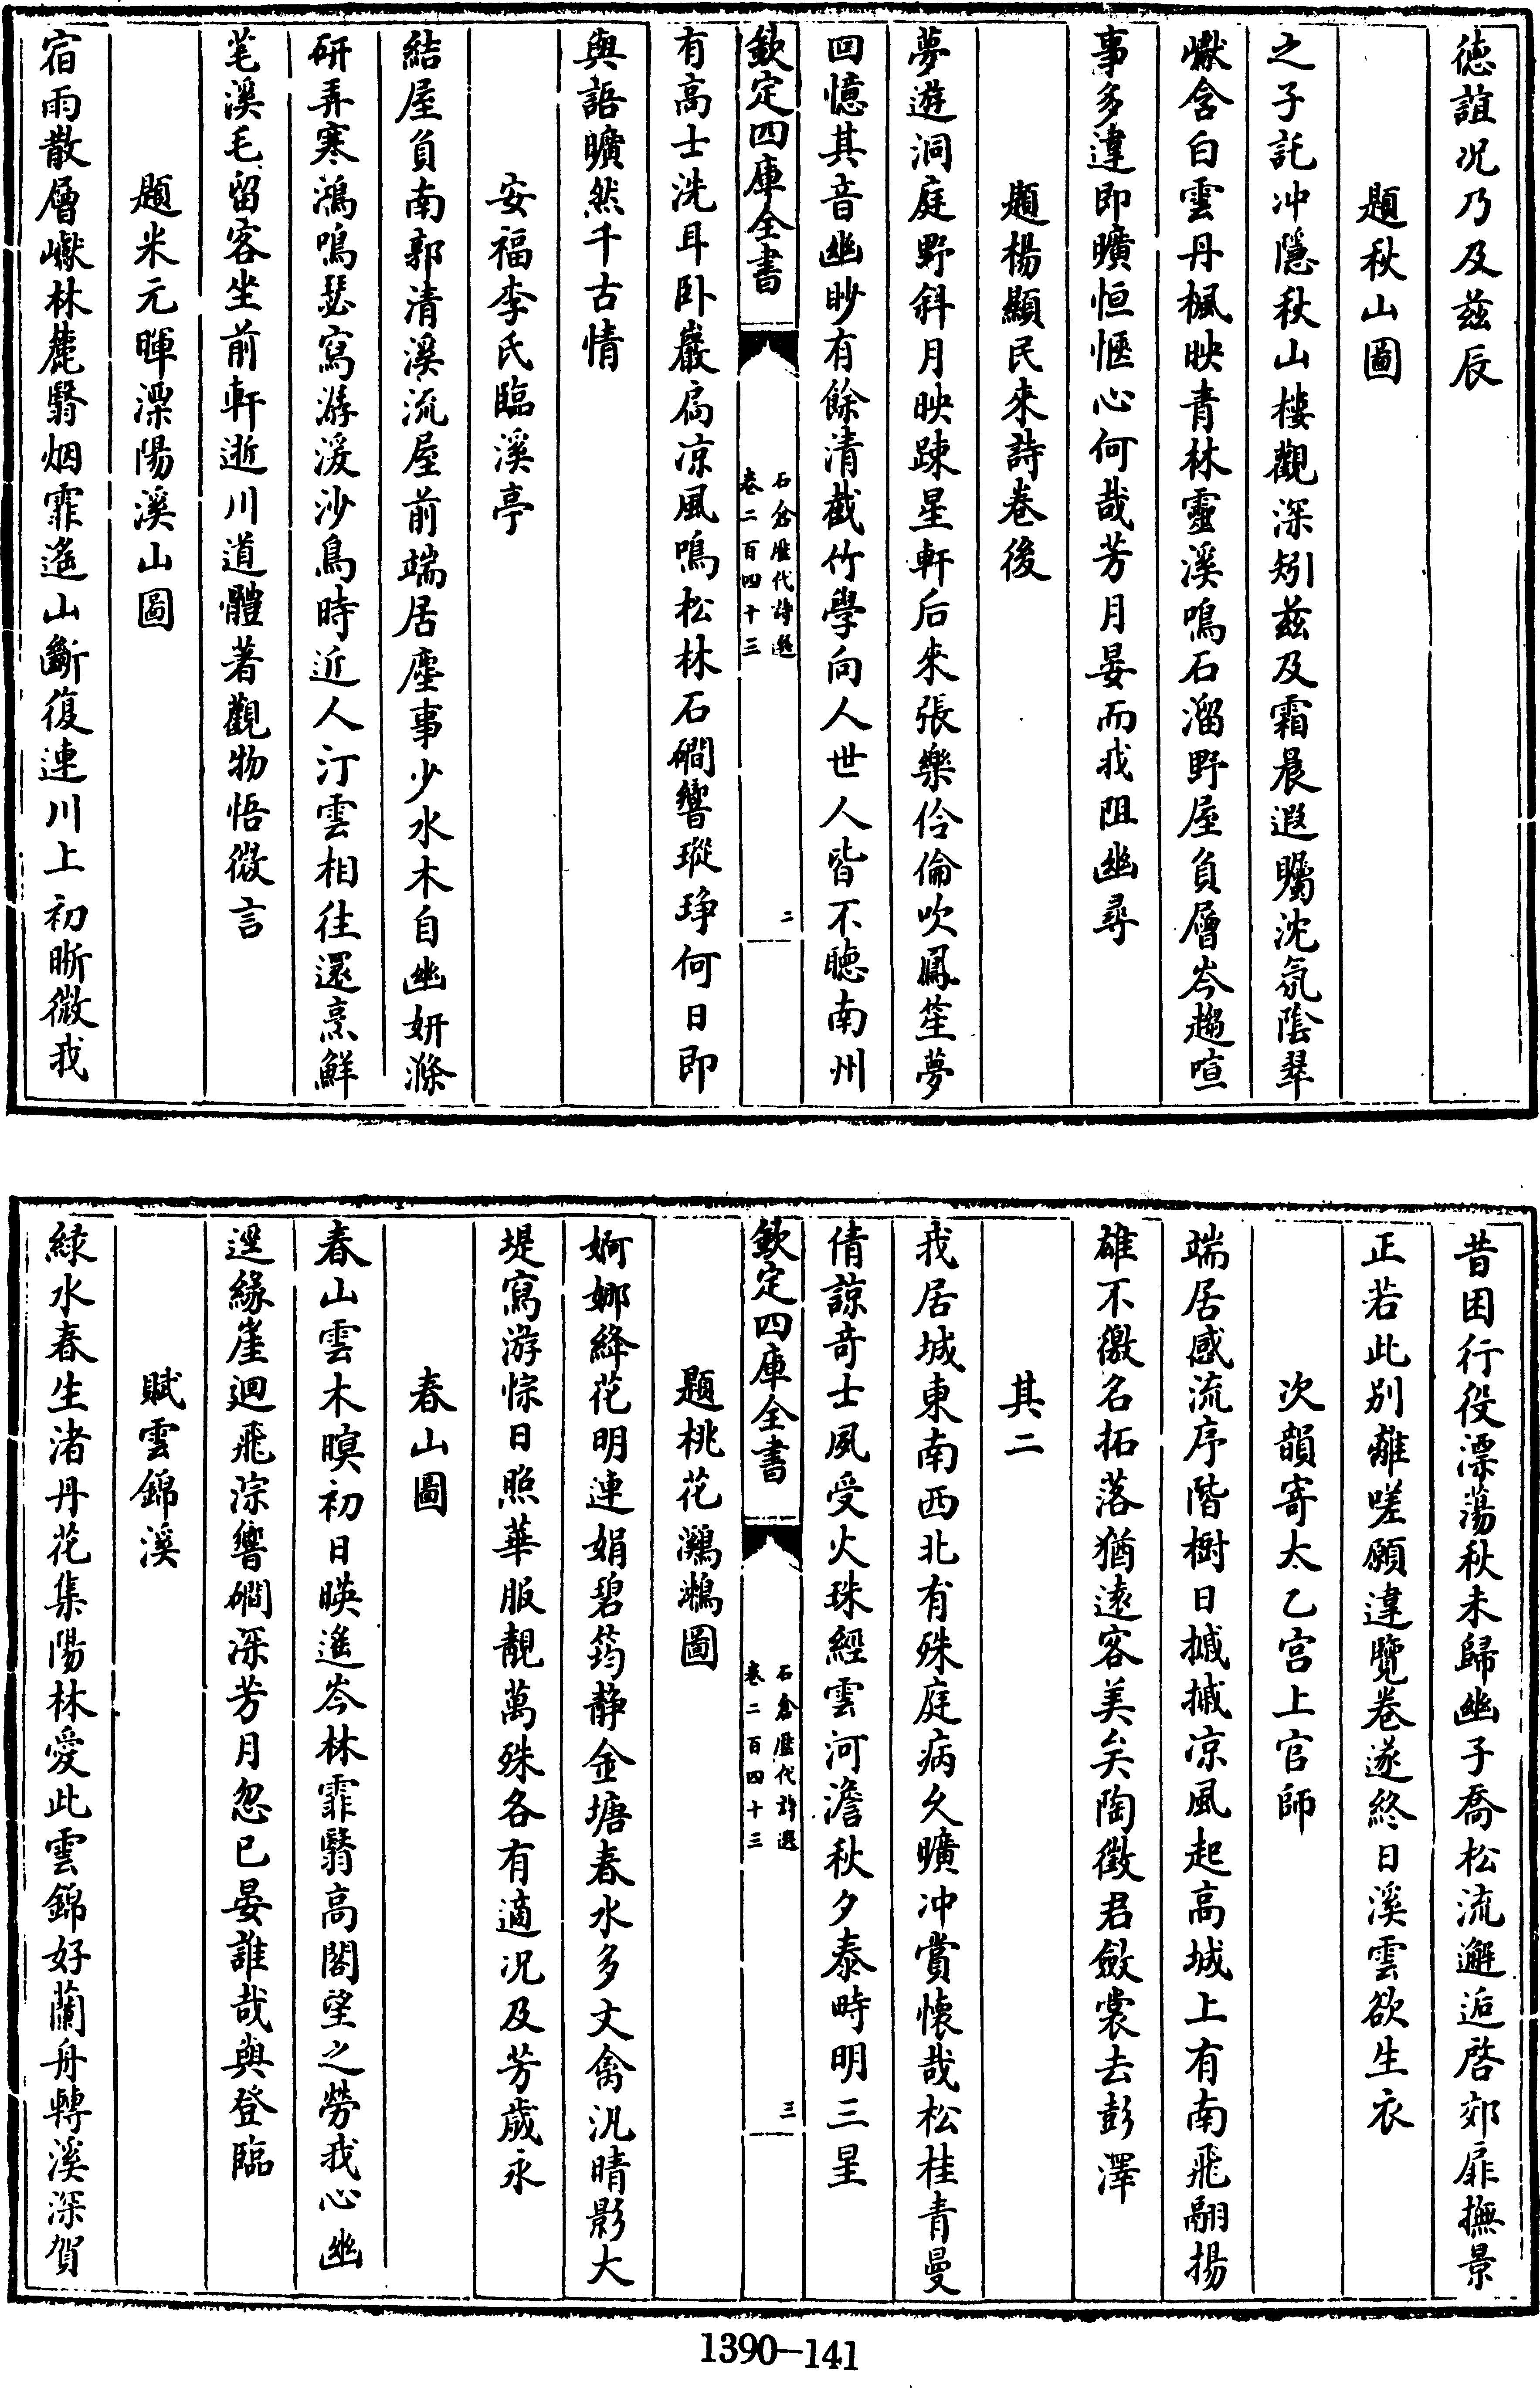 德誼况乃及兹辰
題秋山圖
之子託冲隱秋山樓觀深矧兹及霜晨遐矚沈氛陰翠
巘含白雲丹楓映青林靈溪鳴石溜野屋負層岑趨喧
事多違即曠恒愜心何哉芳月晏而我阻幽尋
題楊顯民來詩卷後
夢遊洞庭野斜月映踈星軒后來張樂伶倫吹鳳笙夢
回憶其音幽眇有餘清截竹學向人世人皆不聽南州
欽定四庫全書
石倉歷代詩選
卷二百四十三
二
有高士洗耳卧巖扃凉風鳴松林石磵響瑽琤何日即
與語曠然千古情
安福李氏臨溪亭
結屋負南郭清溪流屋前端居塵事少水木自幽妍滌
研弄寒鴻鳴瑟寫潺湲沙鳥時近人汀雲相往還烹鮮
芼溪毛留客坐前軒逝川道體著觀物悟微言
題米元暉溧陽溪山圖
宿雨散層巘林麓翳烟霏遙山斷復連川上初晰微我
昔困行役漂蕩秋未歸幽子喬松流邂逅啓郊扉撫景
正若此别離嗟願違覽卷遂終日溪雲欲生衣
次韻寄太乙宫上官師
端居感流序階樹日摵摵凉風起高城上有南飛翮揚
雄不徼名拓落猶遠客美矣陶徵君斂裳去彭澤
其二
我居城東南西北有殊庭病久曠冲賞懷哉松桂青曼
倩諒竒士夙受火珠經雲河澹秋夕泰畤明三星
欽定四庫全書
石倉歷代詩選
卷二百四十三
三
題桃花鸂鶒圖
婀娜絳花明連娟碧筠静金塘春水多文禽汎晴影大
堤寫游悰日照華服靚萬殊各有適况及芳歲永
春山圖
春山雲木暝初日暎遙岑林霏翳高閣望之勞我心幽
逕緣崖迴飛淙響磵深芳月忽已晏誰哉與登臨
賦雲錦溪
緑水春生渚丹花集陽林愛此雲錦好蘭舟轉溪深賀
1390—141